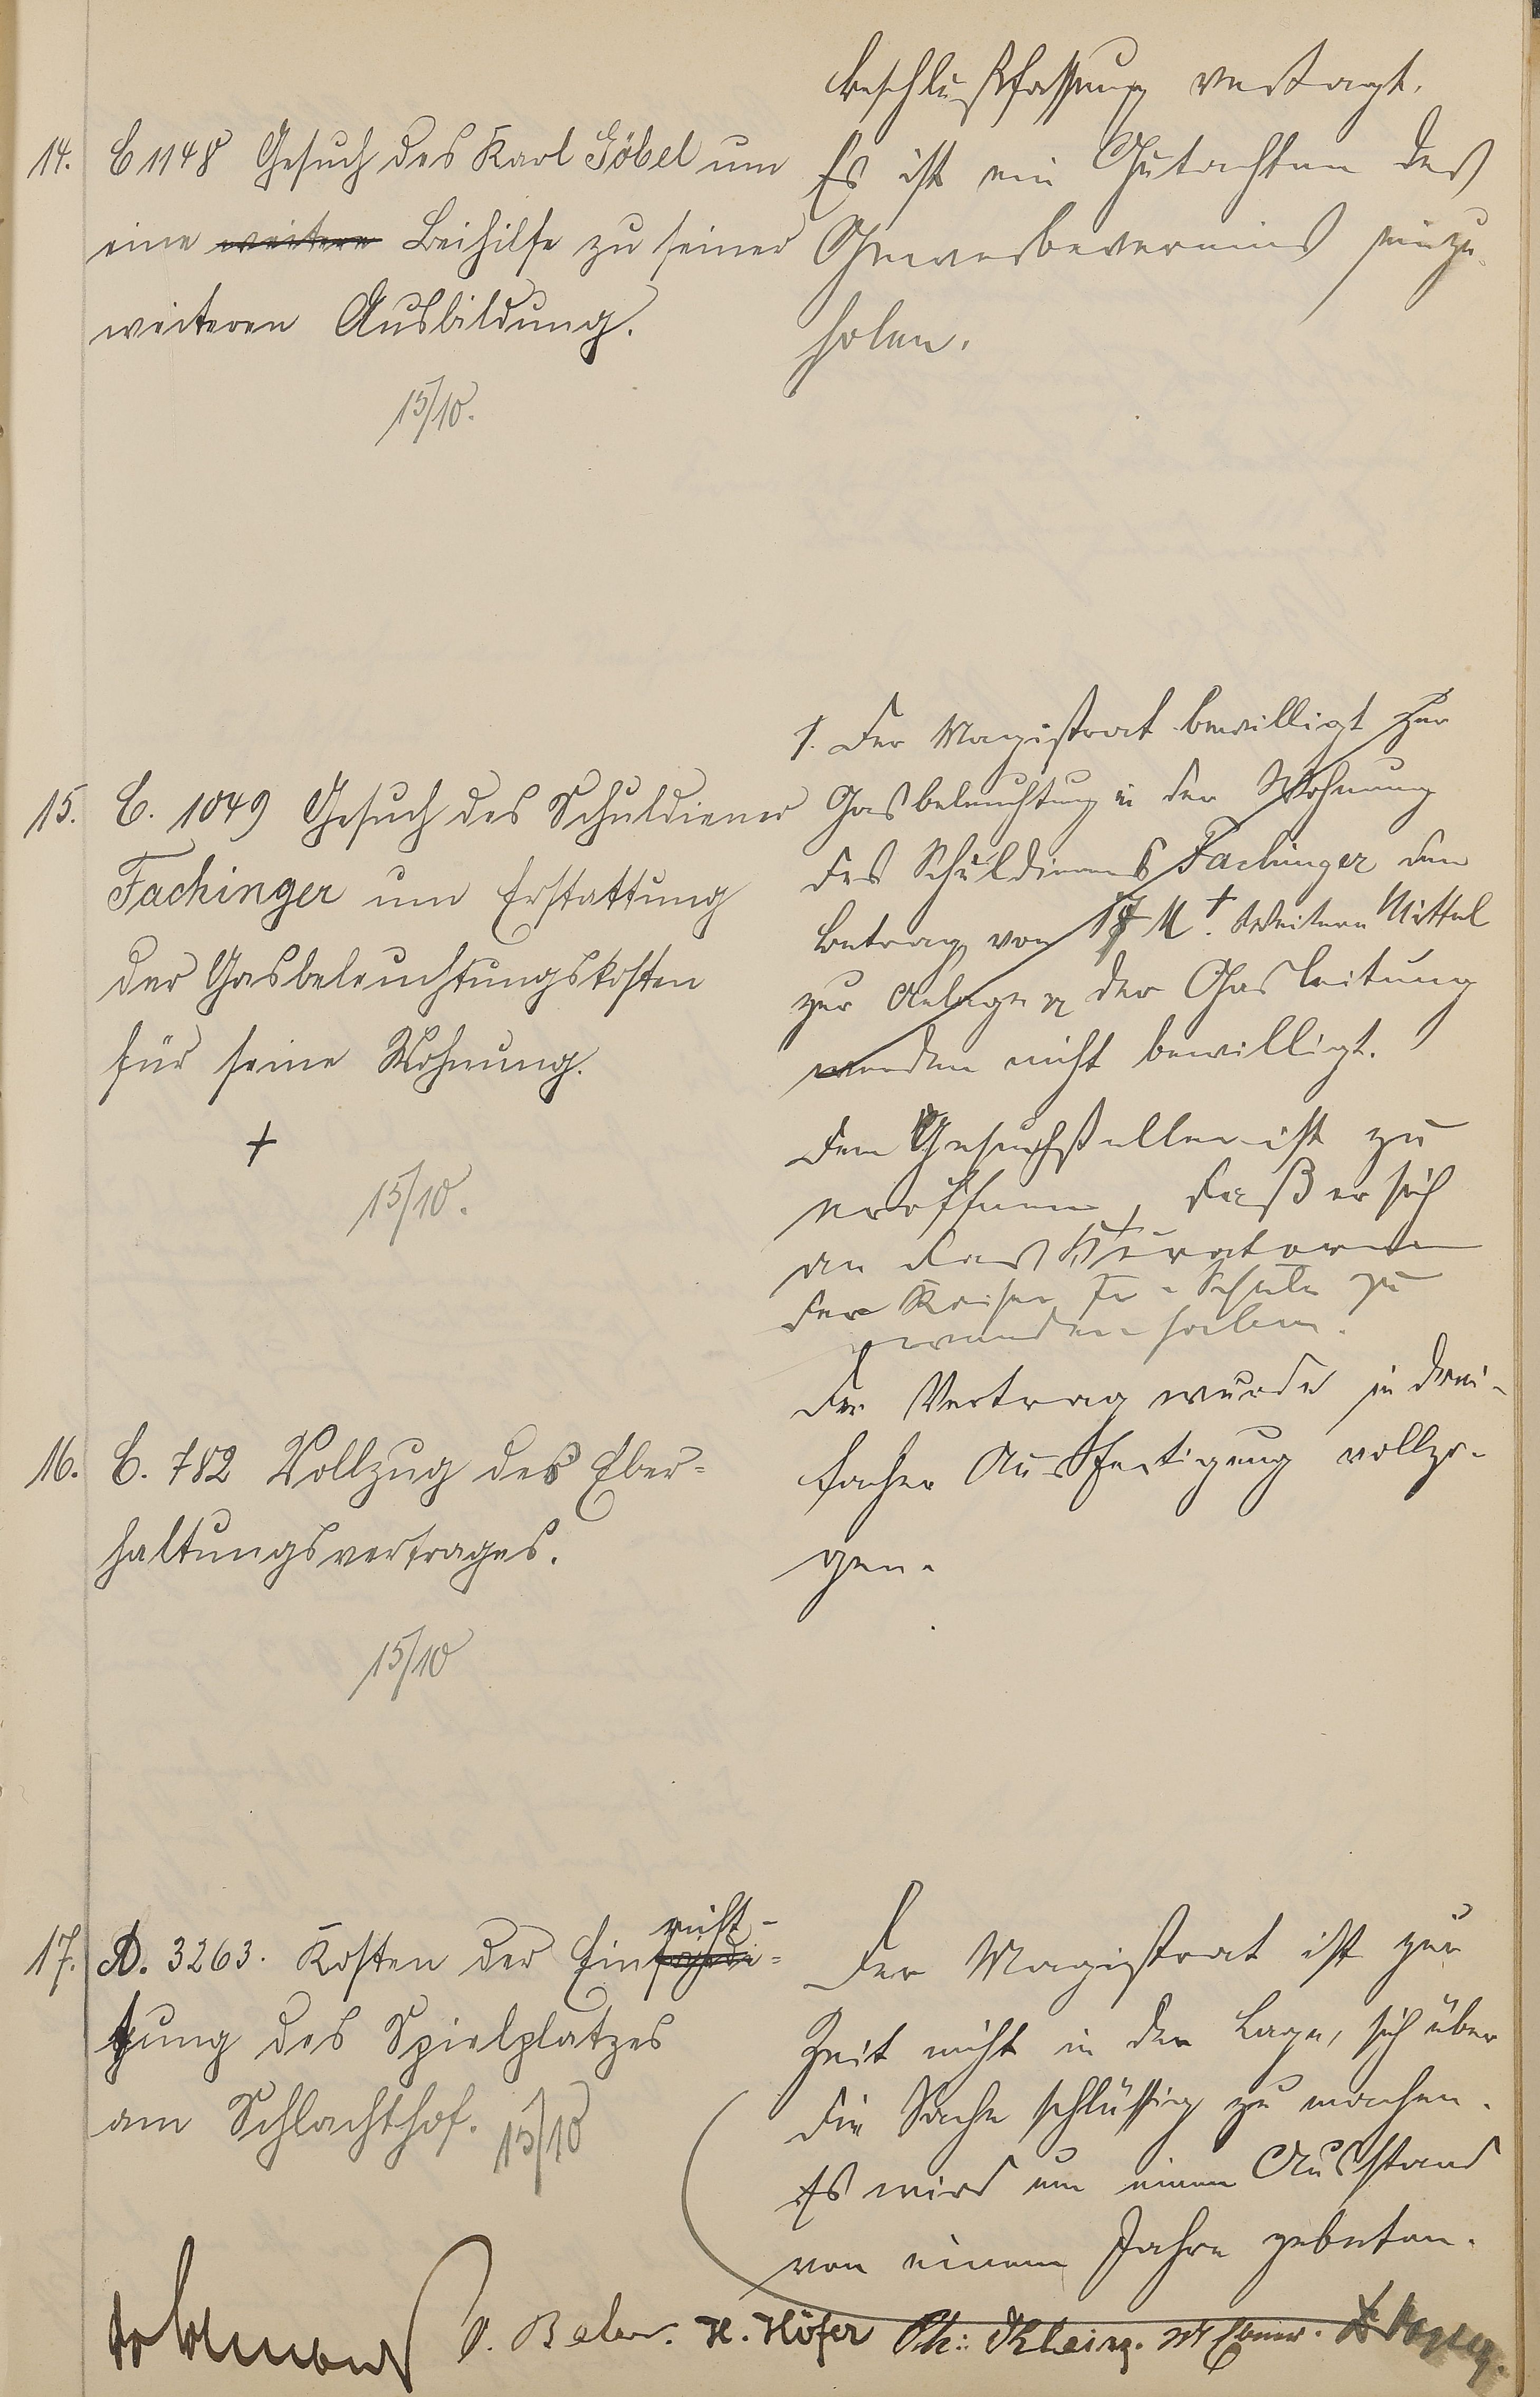 beschlußfassung vertagt.
14. C 1148 Gesuch des Karl Göbel um
eine weitere Beihilfe zu seiner
weiteren Ausbildung.
15/10.
Es ist ein Gutachten des
Gewerbevereins einzu-
holen.
15. C. 1049 Gesuch des Schuldiener
Fachinger um Erstattung
der Gasbeleuchtungskosten
für seine Wohnung.
+
15/10.
1. Der Magistrat bewilligt zur
Gasbeleuchtung in der Wohnung
des Schuldieners Fachinger den
Betrag von 17 M. + Weitere Mittel
zur Anlage der Gasleitung
werden nicht bewilligt.
Dem Gesuchsteller ist zu
eröffnen, daß er sich
an das Kuratorium
der Kaiser Fr. Schule zu
wenden habe.
16. C. 782 Vollzug des Eber-
haltungsvertrages.
15/10
Der Vertrag wurde in drei-
facher Ausfertigung vollzo-
gen.
17. A. 3263. Kosten der Einrich-
tung des Spielplatzes
am Schlachthof. 15/10
Der Magistrat ist zur
Zeit nicht in der Lage, sich über
die Sache schlüssig zu machen.
Es wird um einen Ausstand
von einem Jahre gebeten.
H. Höfer Ph: Kleinz.